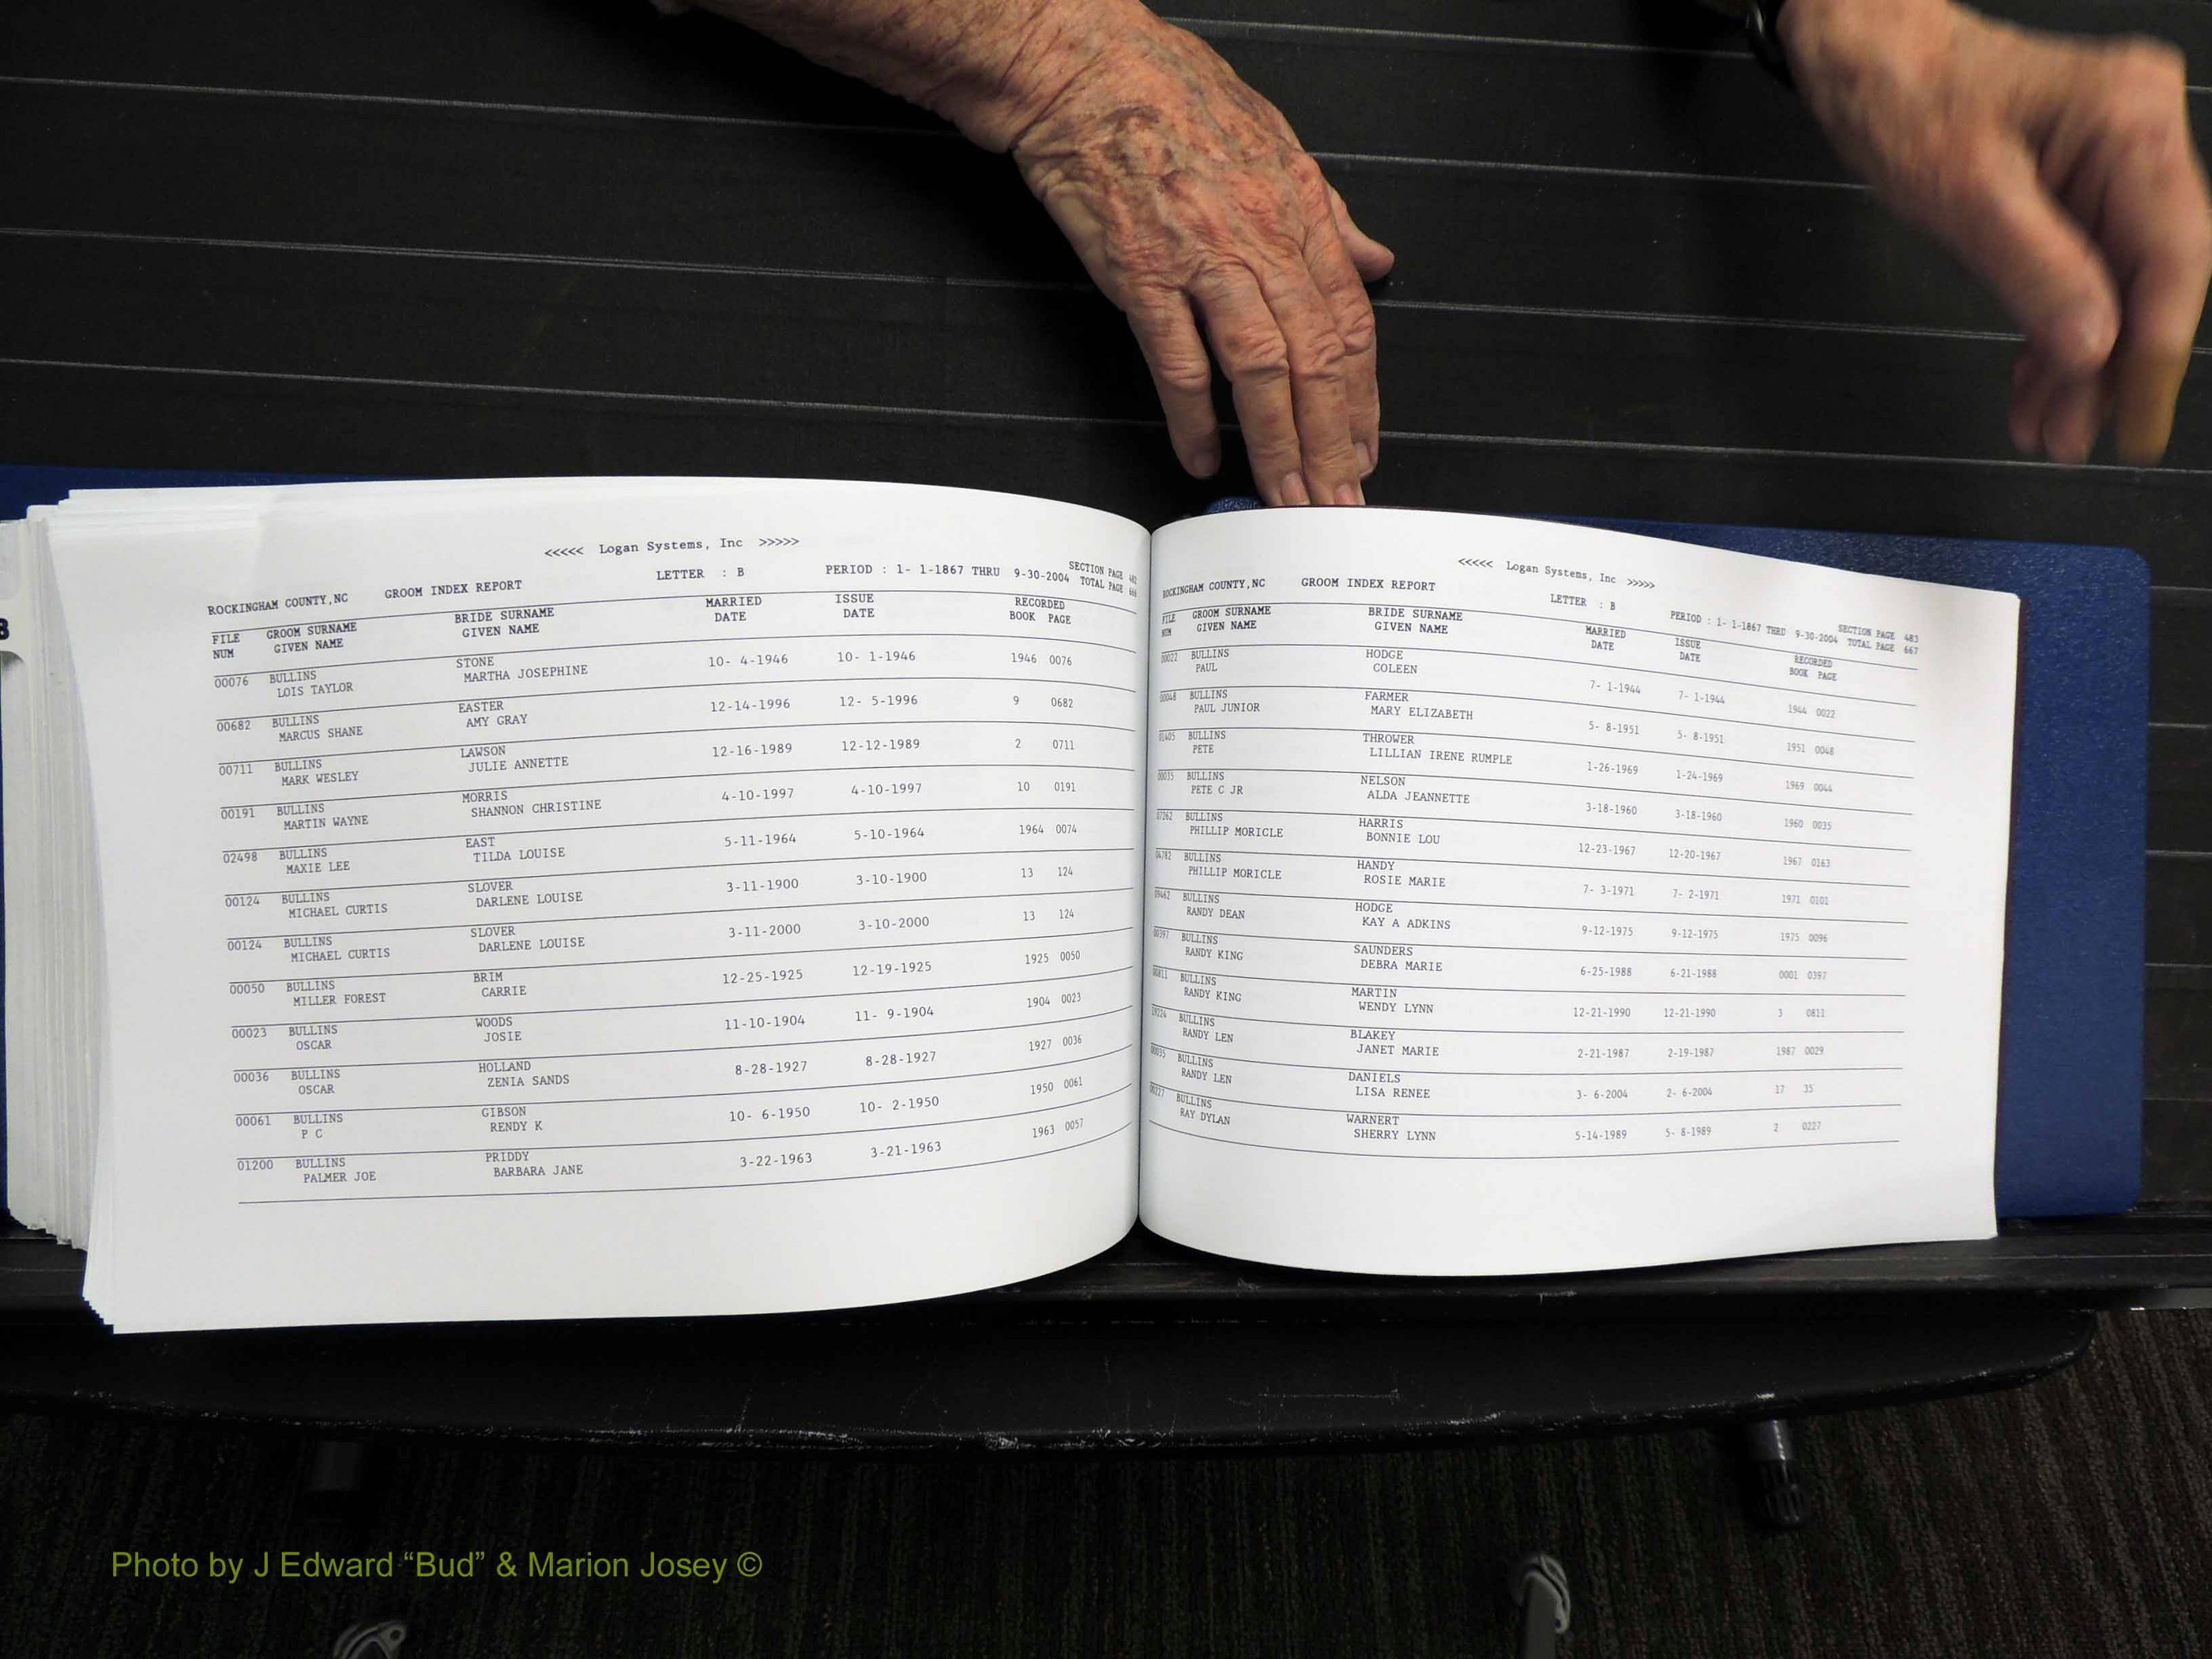 <<<<< Logan Systems, Inc >>>>>
ROCKINGHAM COUNTY,NC GROOM INDEX REPORT LETTER : B PERIOD : 1- 1-1867 THRU 9-30-2004 SECTION PAGE 482
TOTAL PAGE 666
FILE GROOM SURNAME BRIDE SURNAME MARRIED ISSUE RECORDED
NUM GIVEN NAME GIVEN NAME DATE DATE BOOK PAGE
00076 BULLINS STONE 10- 4-1946 10- 1-1946 1946 0076
LOIS TAYLOR MARTHA JOSEPHINE
00682 BULLINS EASTER 12-14-1996 12- 5-1996 9 0682
MARCUS SHANE AMY GRAY
00711 BULLINS LAWSON 12-16-1989 12-12-1989 2 0711
MARK WESLEY JULIE ANNETTE
00191 BULLINS MORRIS 4-10-1997 4-10-1997 10 0191
MARTIN WAYNE SHANNON CHRISTINE
02498 BULLINS EAST 5-11-1964 5-10-1964 1964 0074
MAXIE LEE TILDA LOUISE
00124 BULLINS SLOVER 3-11-1900 3-10-1900 13 124
MICHAEL CURTIS DARLENE LOUISE
00124 BULLINS SLOVER 3-11-2000 3-10-2000 13 124
MICHAEL CURTIS DARLENE LOUISE
00050 BULLINS BRIM 12-25-1925 12-19-1925 1925 0050
MILLER FOREST CARRIE
00023 BULLINS WOODS 11-10-1904 11- 9-1904 1904 0023
OSCAR JOSIE
00036 BULLINS HOLLAND 8-28-1927 8-28-1927 1927 0036
OSCAR ZENIA SANDS
00061 BULLINS GIBSON 10- 6-1950 10- 2-1950 1950 0061
P C RENDY K
01200 BULLINS PRIDDY 3-22-1963 3-21-1963 1963 0057
PALMER JOE BARBARA JANE
<<<<< Logan Systems, Inc >>>>>
ROCKINGHAM COUNTY,NC GROOM INDEX REPORT LETTER : B PERIOD : 1- 1-1867 THRU 9-30-2004 SECTION PAGE 483
TOTAL PAGE 667
FILE GROOM SURNAME BRIDE SURNAME MARRIED ISSUE RECORDED
NUM GIVEN NAME GIVEN NAME DATE DATE BOOK PAGE
00022 BULLINS HODGE 7- 1-1944 7- 1-1944 1944 0022
PAUL COLEEN
00048 BULLINS FARMER 5- 8-1951 5- 8-1951 1951 0048
PAUL JUNIOR MARY ELIZABETH
BULLINS THROWER 1-26-1969 1-24-1969 1969 0044
PETE LILLIAN IRENE RUMPLE
00035 BULLINS NELSON 3-18-1960 3-18-1960 1960 0035
PETE C JR ALDA JEANNETTE
BULLINS HARRIS 12-23-1967 12-20-1967 1967 0163
PHILLIP MORICLE BONNIE LOU
BULLINS HANDY 7- 3-1971 7- 2-1971 1971 0101
PHILLIP MORICLE ROSIE MARIE
BULLINS HODGE 9-12-1975 9-12-1975 1975 0096
RANDY DEAN KAY A ADKINS
00397 BULLINS SAUNDERS 6-25-1988 6-21-1988 0001 0397
RANDY KING DEBRA MARIE
00811 BULLINS MARTIN 12-21-1990 12-21-1990 3 0811
RANDY KING WENDY LYNN
BULLINS BLAKEY 2-21-1987 2-19-1987 1987 0029
RANDY LEN JANET MARIE
00035 BULLINS DANIELS 3- 6-2004 2- 6-2004 17 35
RANDY LEN LISA RENEE
00227 BULLINS WARNERT 5-14-1989 5- 8-1989 2 0227
RAY DYLAN SHERRY LYNN
Photo by J Edward “Bud” & Marion Josey ©